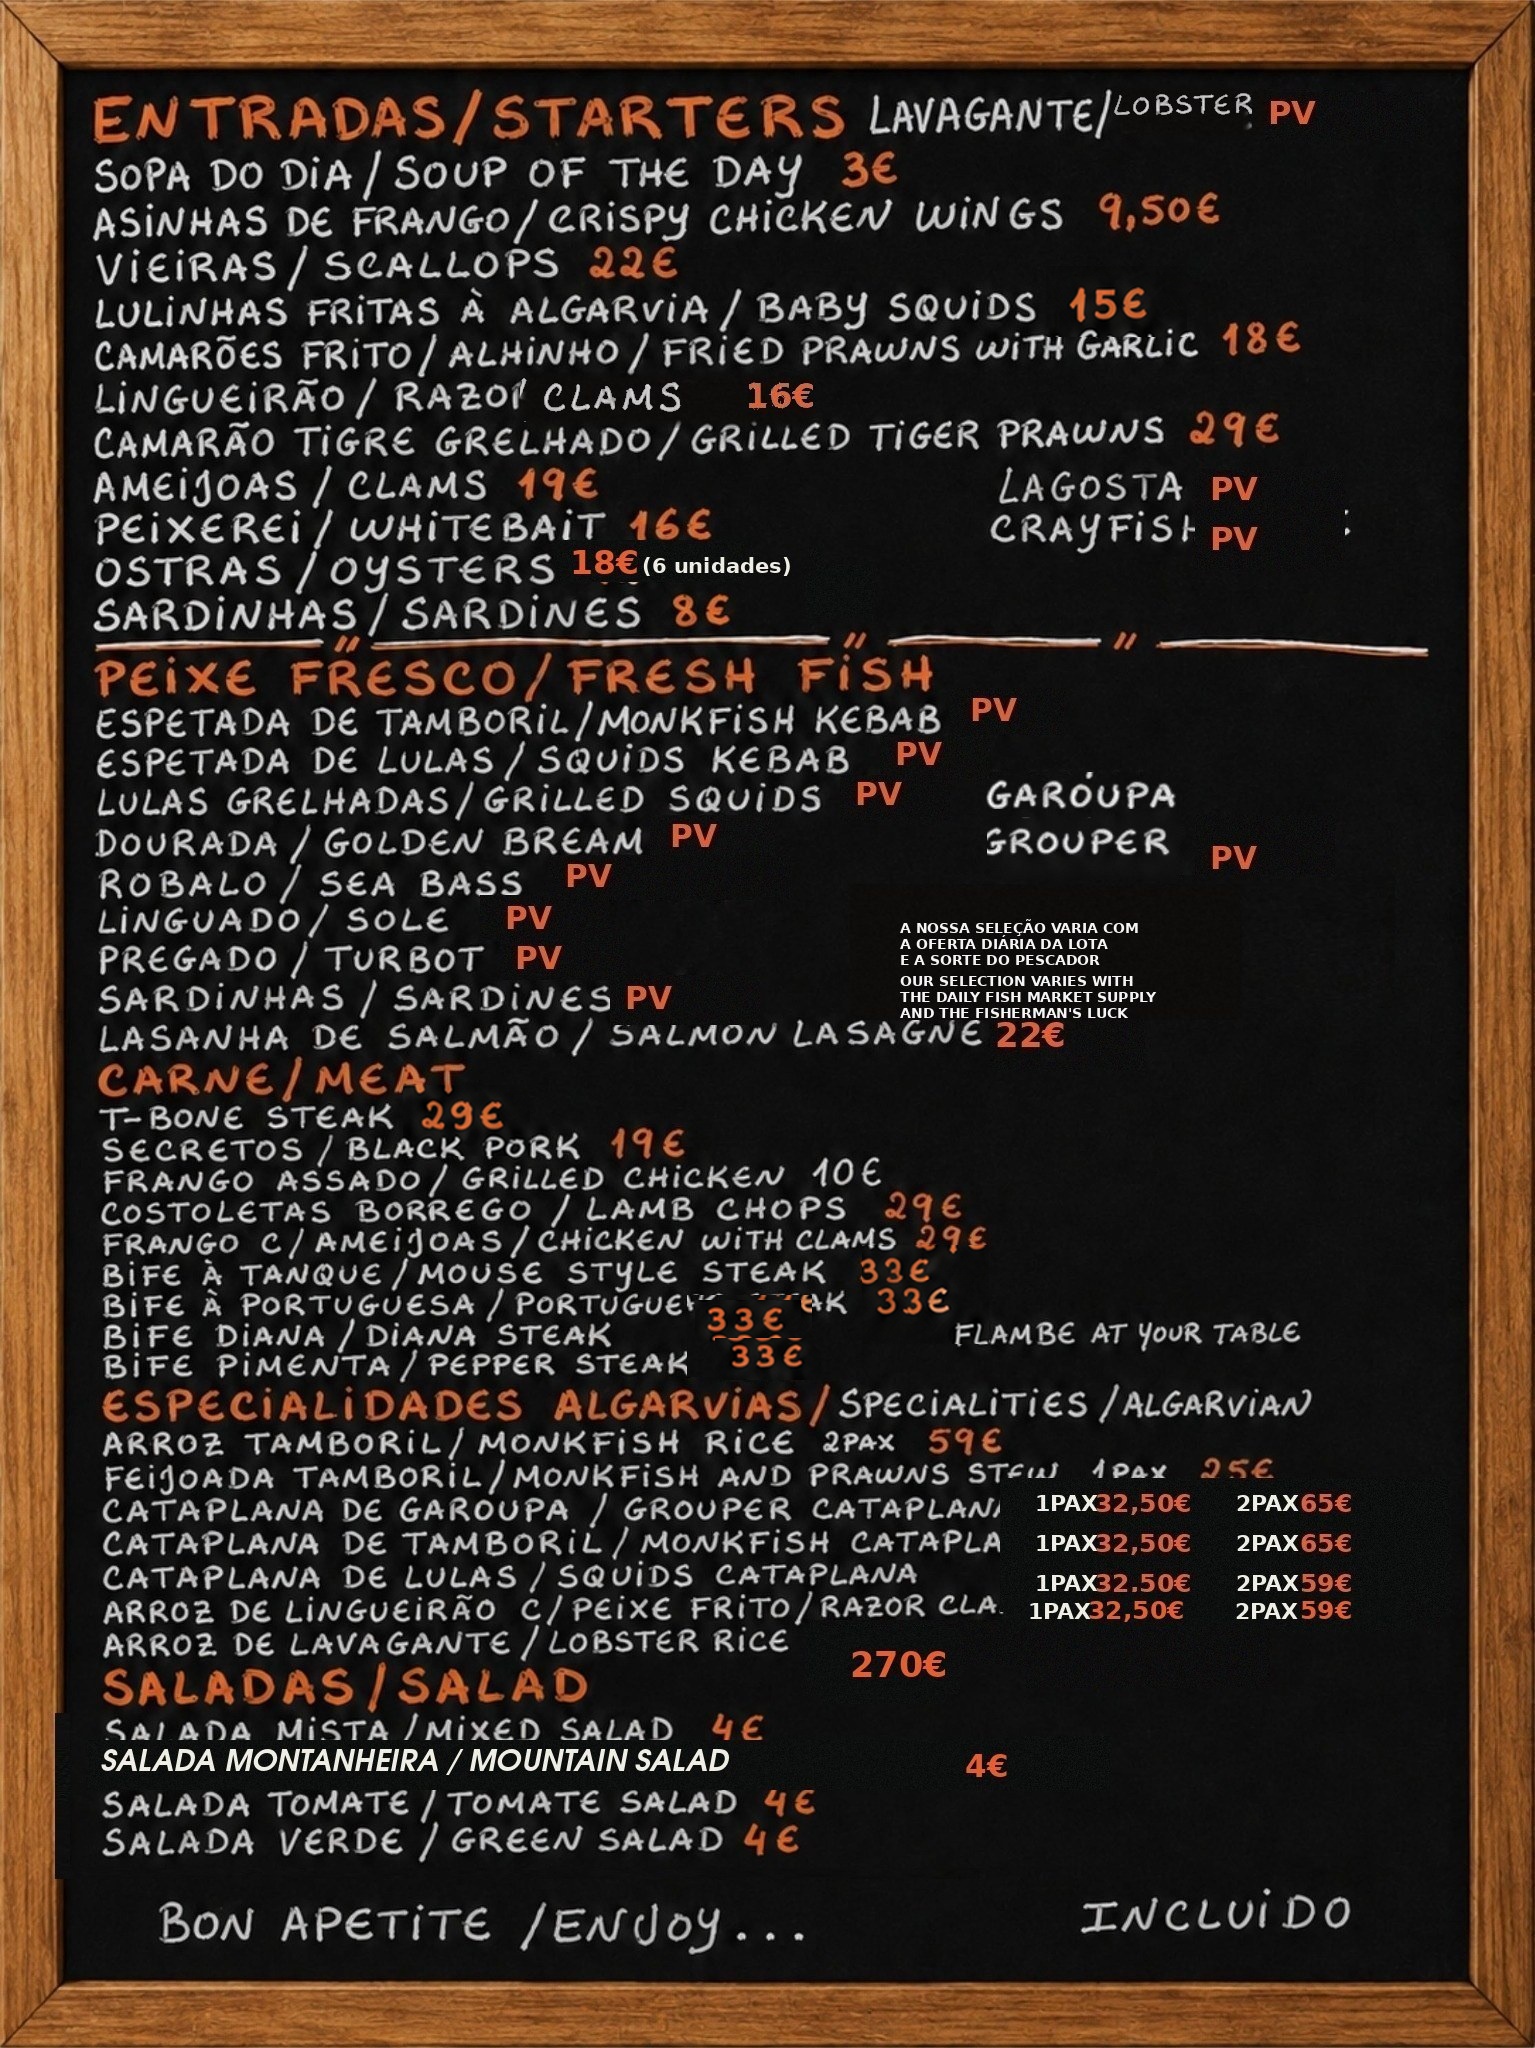 ENTRADAS/STARTERS LAVAGANTE/LOBSTER PV
SOPA DO DIA / SOUP OF THE DAY 3€
ASINHAS DE FRANGO / CRISPY CHICKEN WINGS 9,50€
VIEIRAS / SCALLOPS 22€
LULINHAS FRITAS À ALGARVIA / BABY SQUIDS 15€
CAMARÕES FRITO / ALHINHO / FRIED PRAWNS WITH GARLIC 18€
LINGUEIRÃO / RAZOR CLAMS 16€
CAMARÃO TIGRE GRELHADO / GRILLED TIGER PRAWNS 29€
AMEIJOAS / CLAMS 19€
LAGOSTA PV
PEIXEREI / WHITEBAIT 16€
CRAYFISH PV
OSTRAS / OYSTERS 18€ (6 unidades)
SARDINHAS / SARDINES 8€
PEIXE FRESCO / FRESH FISH
ESPETADA DE TAMBORIL/MONKFISH KEBAB PV
ESPETADA DE LULAS / SQUIDS KEBAB PV
LULAS GRELHADAS / GRILLED SQUIDS PV
GARÓUPA
DOURADA / GOLDEN BREAM PV
GROUPER PV
ROBALO / SEA BASS PV
LINGUADO / SOLE PV
PREGADO / TURBOT PV
SARDINHAS / SARDINES PV
A NOSSA SELEÇÃO VARIA COM
A OFERTA DIÁRIA DA LOTA
E A SORTE DO PESCADOR
OUR SELECTION VARIES WITH
THE DAILY FISH MARKET SUPPLY
AND THE FISHERMAN'S LUCK
LASANHA DE SALMÃO / SALMON LASAGNE 22€
CARNE/MEAT
T-BONE STEAK 29€
SECRETOS / BLACK PORK 19€
FRANGO ASSADO / GRILLED CHICKEN 10€
COSTOLETAS BORREGO / LAMB CHOPS 29€
FRANGO C/ AMEIJOAS / CHICKEN WITH CLAMS 29€
BIFE À TANQUE / MOUSE STYLE STEAK 33€
BIFE À PORTUGUESA / 33€
BIFE DIANA / DIANA STEAK 33€
FLAMBE AT YOUR TABLE
BIFE PIMENTA / PEPPER STEAK 33€
ESPECIALIDADES ALGARVIAS / SPECIALITIES / ALGARVIAN
ARROZ TAMBORIL / MONKFISH RICE 2PAX 59€
FEIJOADA TAMBORIL / MONKFISH AND PRAWNS STEW 1PAX 25€
CATAPLANA DE GAROUPA / GROUPER CATAPLANA 1PAX32,50€ 2PAX65€
CATAPLANA DE TAMBORIL / MONKFISH CATAPLA 1PAX32,50€ 2PAX65€
CATAPLANA DE LULAS / SQUIDS CATAPLANA 1PAX32.50€ 2PAX59€
ARROZ DE LINGUEIRÃO C/ PEIXE FRITO / RAZOR CLA 1PAX32,50€ 2PAX59€
ARROZ DE LAVAGANTE / LOBSTER RICE 270€
SALADAS/SALAD
SALADA MISTA / MIXED SALAD 4€
SALADA MONTANHEIRA / MOUNTAIN SALAD 4€
SALADA TOMATE / TOMATE SALAD 4€
SALADA VERDE / GREEN SALAD 4€
BON APETITE / ENJOY...
INCLUIDO